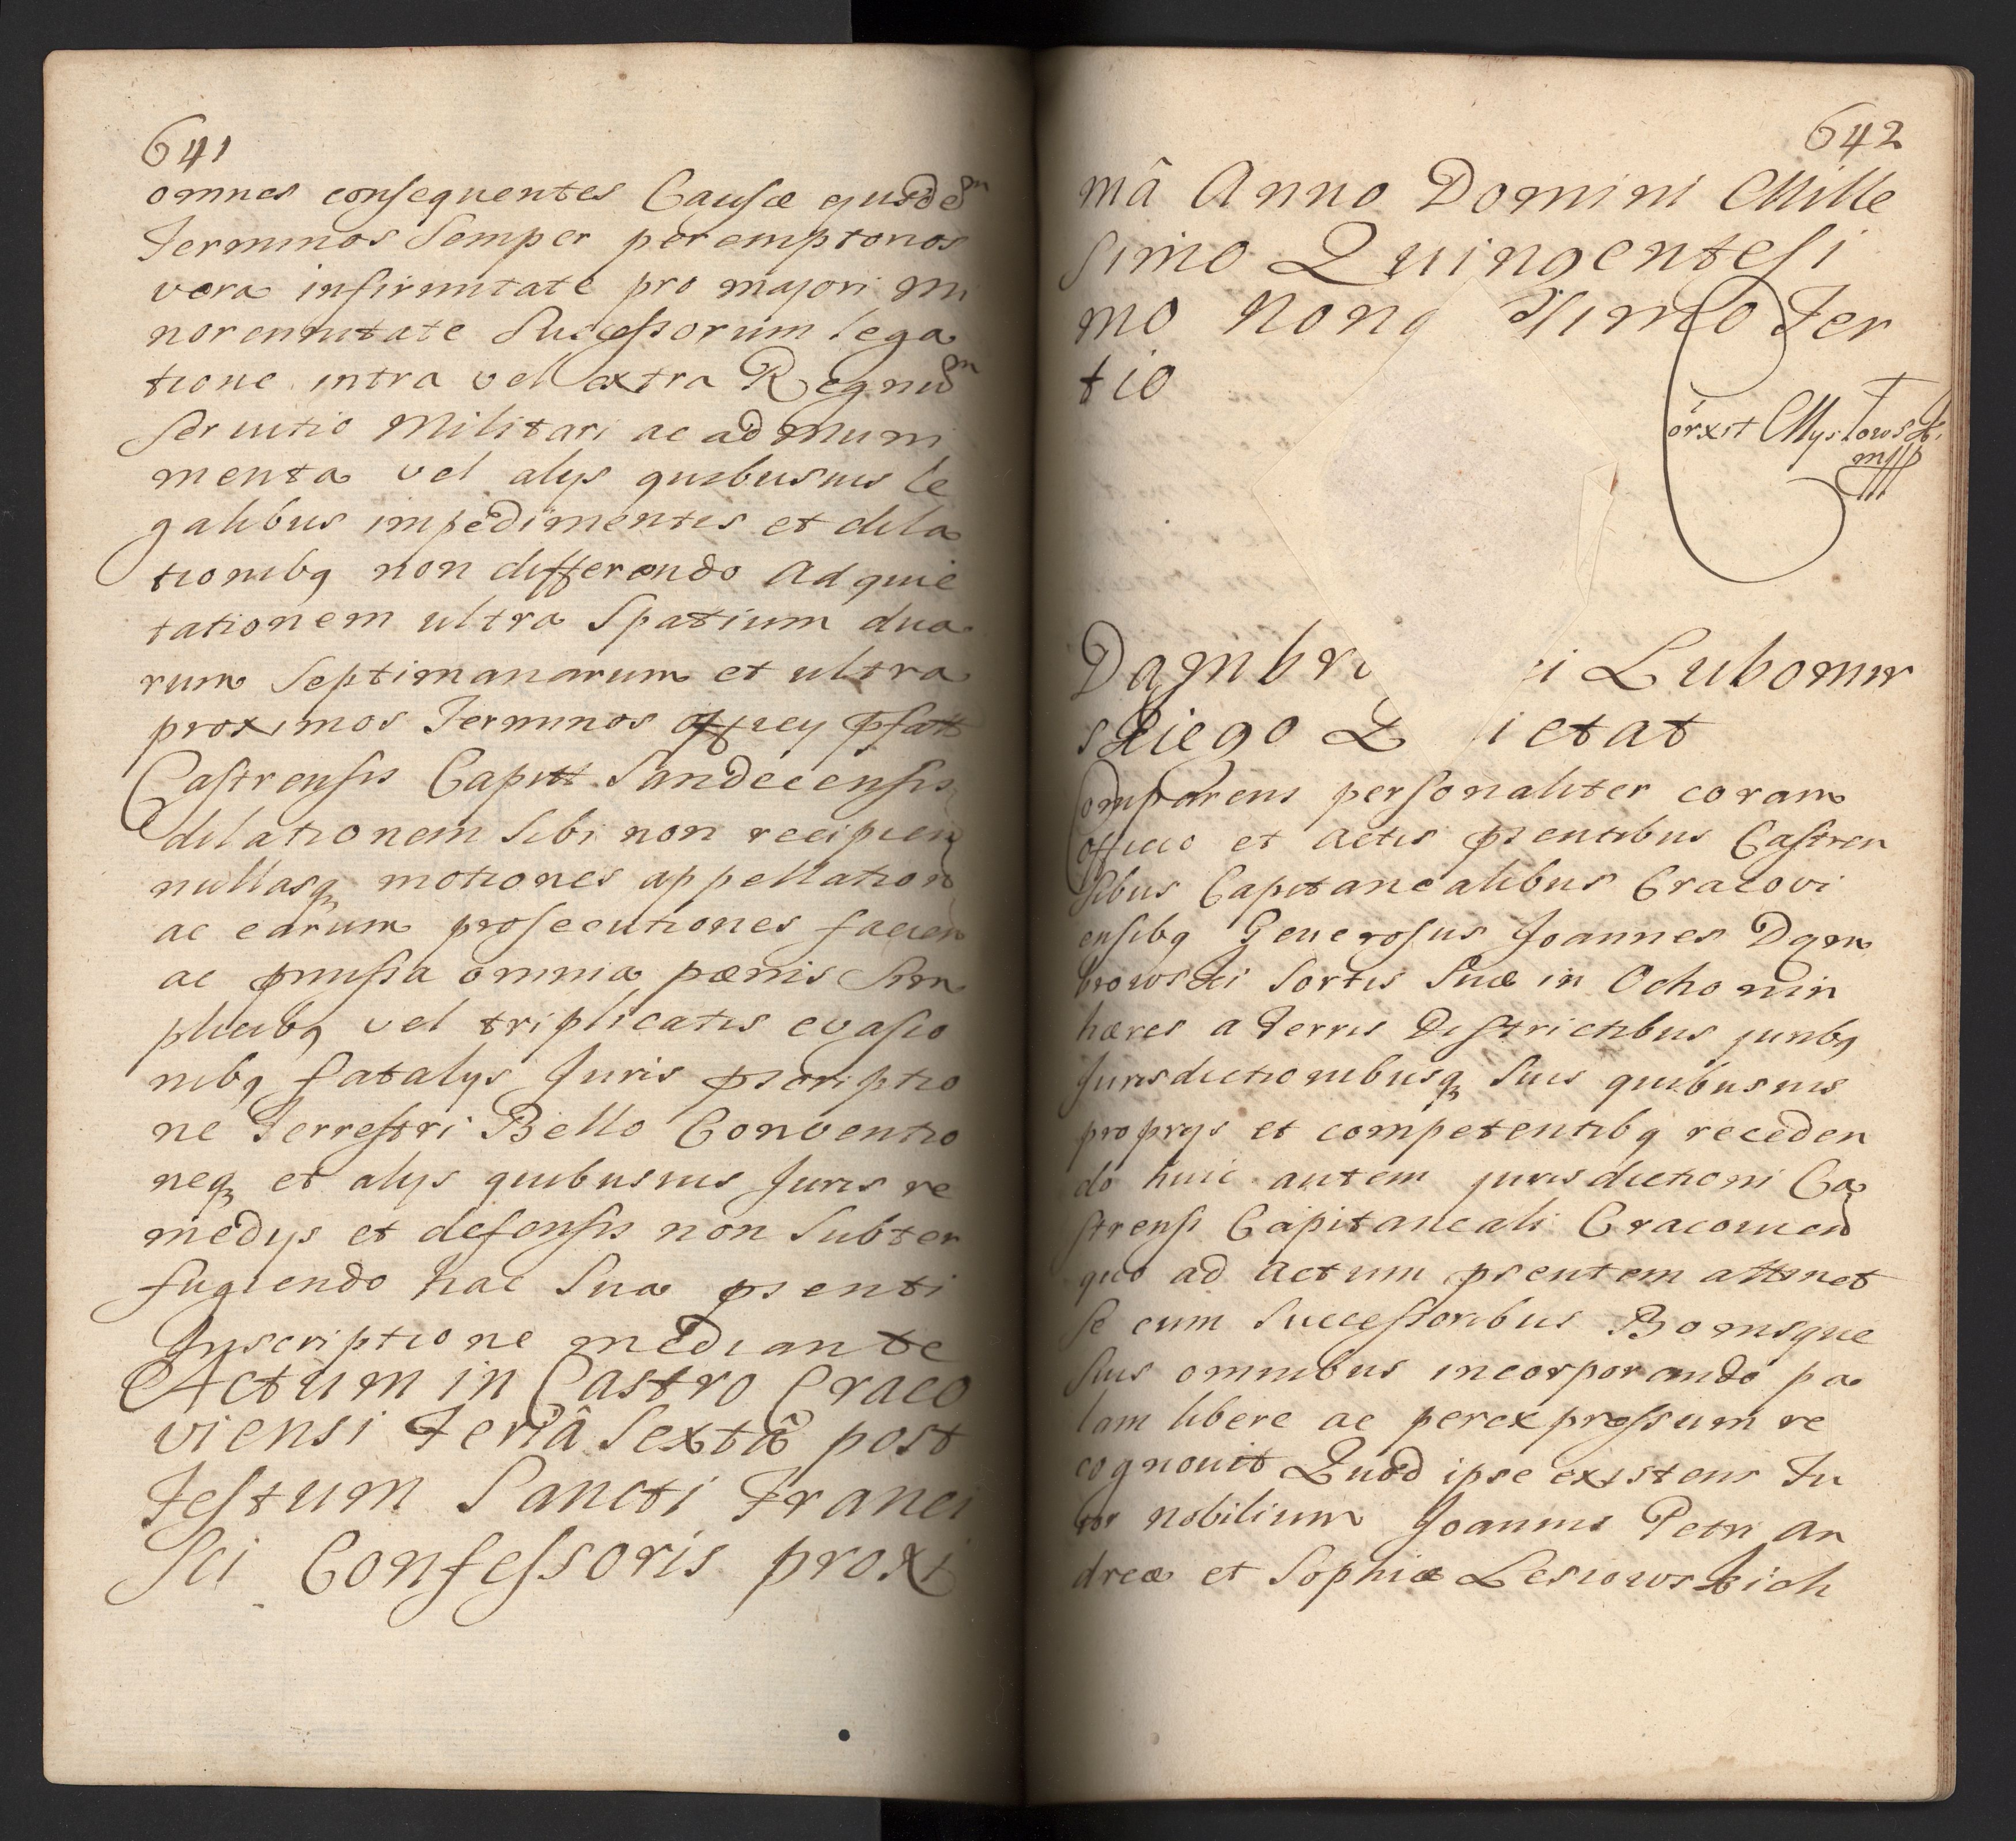 641
omnes consequentes Causæ ejusdem
Terminos Semper peremptorios
vera infirmitate pro majori mi
norennitate Successorum lega
tione intra vel extra Regnum
Servitio Militari ac ad Muni
menta vel alys quibusvis le
galibus impedimentis et dila
tionibq non differendo Ad quie
tationem ultra Spatium dua
rum Septimanarum et ultra
proximos Terminos officy pfatt
Castrensis Capitt Sandecensis
dilationem sibi non recipien
nullasq motiones appellation
ac earum prosecutiones facien
ac pmissa omnia pænis Sim
plicibq vel triplicatis evasio
nibq fatalys Juris pscriptio
ne Terrestri Bello Conventio
neq et alys quibusvis Juris re
medys et defensis non Subter
fugiendo hac Sua psenti
Inscriptione mediante
Actum in Castro Craco
viensi Feriâ Sextâ post
Festum Sancti Franci
sci Confessoris proxi
642
mâ Anno Domini Mille
simo Quingentesi
mo Nona simo Ter
tio
Corxit Mystowski
mpp
Dąmbr i Lubomir
skiego Q ietat
Comparens personaliter coram
officio et actis psentibus Castren
sibus Capitanealibus Cracovi
ensibq Generosus Joannes Dąm
browski Sortis Suæ in Ochomin
hæres a Terris Districtibus juribq
Jurisdictionibusq Suis quibusvis
proprys et competentibq receden
do huic autem jurisdictioni Ca
strensi Capitaneali Cracovien
quo ad Actum psentem attinet
se cum Successoribus Bonisque
suis omnibus incorporando pa
lam libere ac per expressum re
cognovit Quod ipse existens Tu
tor Nobilium Joannis Petri An
dreæ et Sophiæ Lesiowskich